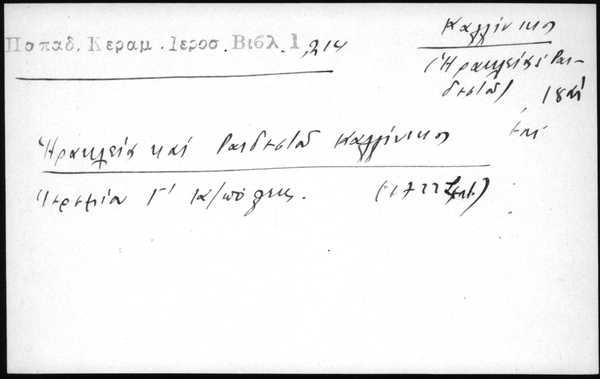 Παπαδ. Κεραμ. Ιεροσ. Βιβλ. 1, 214
Καλλίνικος
(Ἡρακλείας Ραι-
δεστοῦ) 18
Ἡρακλείας καί Ραιδεστοῦ Καλλίνικος ἐπί
Ἱερεμίου Γ' Κ/πόλεως. (1722